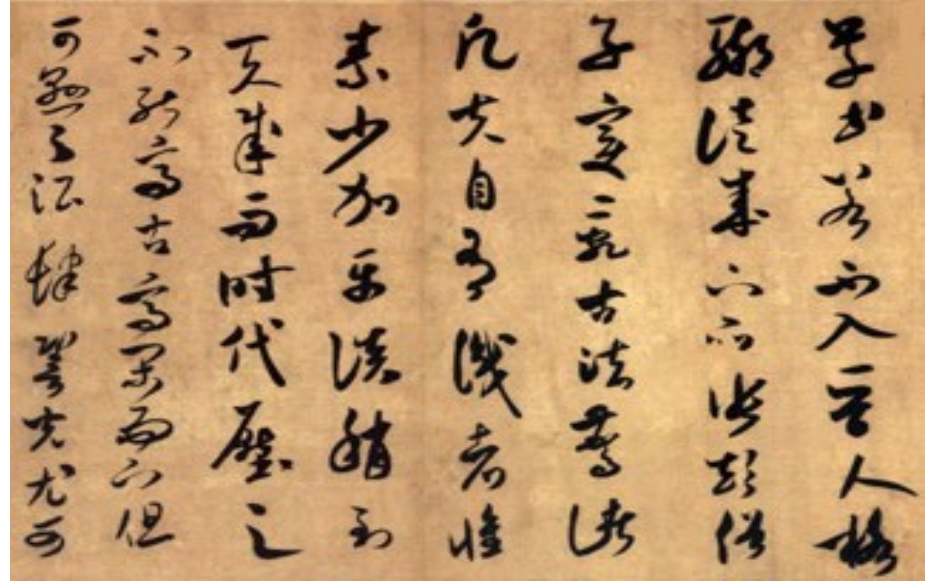 草書若不入晉人格
輒徒成下品張顛俗
子變亂古法驚諸
凡夫自有識者懷
素少加平淡稍到
天成而時代壓之
不能高古高閑而下但
可懸之酒肆䛒光尤可